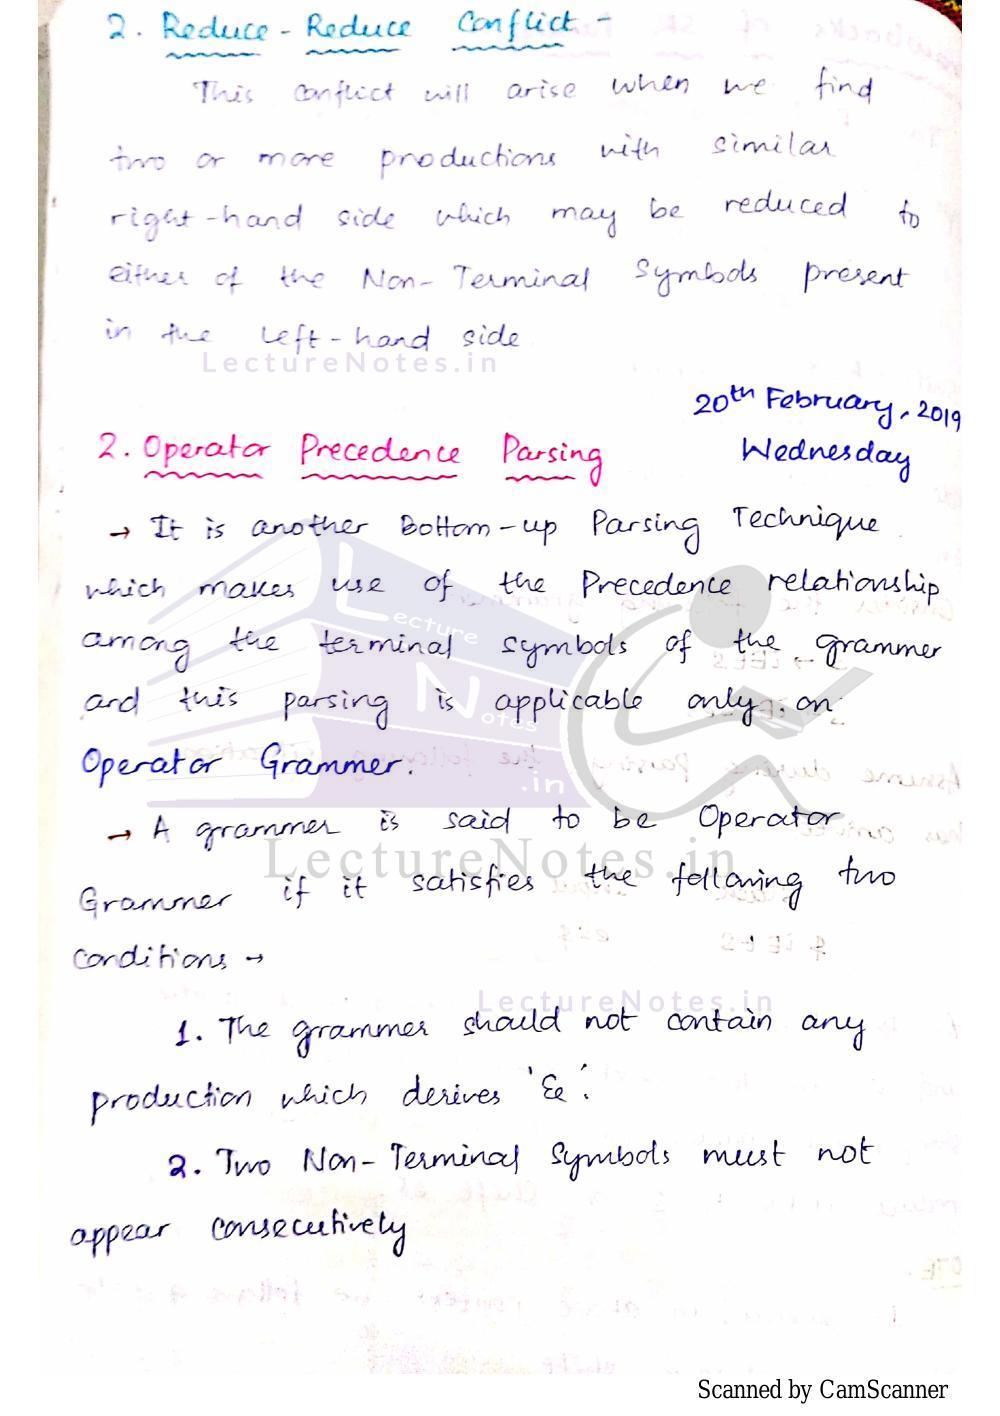 2. Reduce - Reduce Conflict -
This conflict will arise when we find
two or more productions with similar
right-hand side which may be reduced to
either of the Non-Terminal Symbols present
in the left-hand side
LectureNotes.in
20th February, 2019
Wednesday
2. Operator Precedence Parsing
→ It is another Bottom-up Parsing Technique
which makes use of the Precedence relationship
among the terminal symbols of the grammer
and this parsing is applicable only on
Operator Grammer.
→ A grammer is said to be Operator
LectureNotes.in
Grammer if it satisfies the following two
conditions →
LectureNotes.in
1. The grammer should not contain any
production which derives
2. Two Non-Terminal Symbols must not
appear consecutively
Lecture
Notes
.in
Scanned by CamScanner